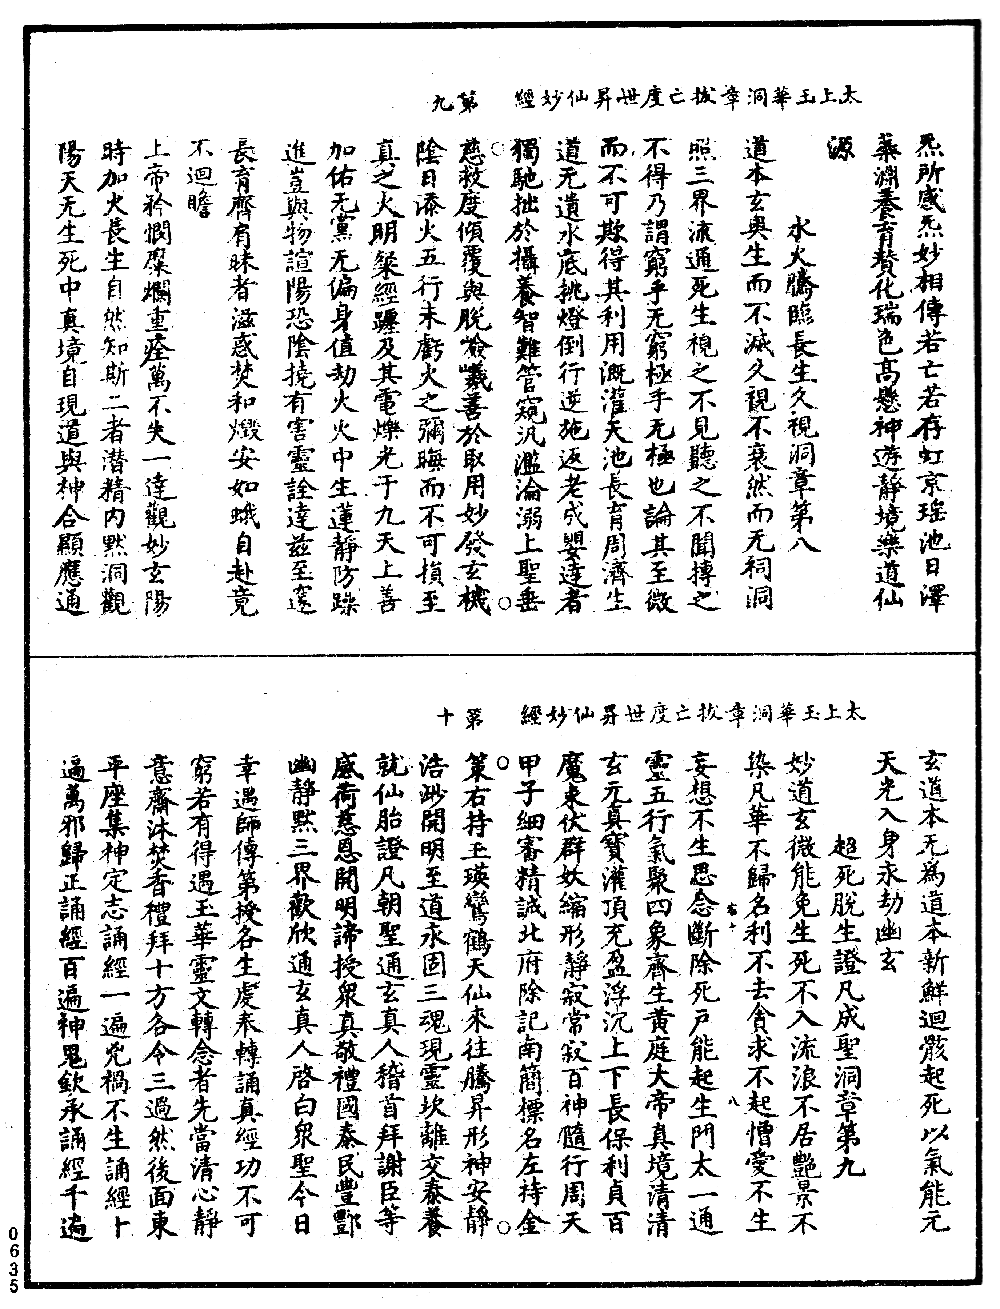 太上玉華洞章拔亡度世昇仙妙經　第九
炁所感炁妙相傳若亡若存虹京瑤池日澤
藥淵養育賛化瑞色高懸神遊靜境樂道仙
源
水火騰臨長生久視洞章第八
道本玄奧生而不滅久視不衰然而无祠洞
照三界流通死生視之不見聽之不聞摶之
不得乃謂窮乎无窮極乎无極也論其至微
而不可欺得其利用溉灌天池長育周濟生
道无遺水底挑燈倒行逆施返老成嬰達者
獨馳拙於攝養智難管窺汎濫淪溺上聖垂
慈救度傾覆與脫嶮巇善於取用妙發玄機
陰日添火五行未虧火之彌晦而不可損至
真之火明粲經躔及其電爍光于九天上善
加佑无黨无偏身值劫火火中生蓮靜防躁
進豈與物諠陽恐陰撓有害靈詮達兹至邃
長育齊肩昧者滋惑焚和燬安如蛾自赴竟
不迴瞻
上帝矜憫糜爛重痊萬不失一達觀妙玄陽
時加火長生自然知斯二者潛精內默洞觀
陽天无生死中真境自現道與神合顯應通
太上玉華洞章拔亡度世昇仙妙經　第十
玄道本无爲道本新鮮迴骸起死以氣能元
天光入身永劫幽玄
超死脫生證凡成聖洞章第九
妙道玄微能免生死不入流浪不居艷景不
染凡華不歸名利不去貪求不起憎愛不生
妄想不生思念斷除死戸能起生門太一通
靈五行氣聚四象齊生黃庭大帝真境清清
玄元真寳灌頂充盈浮沉上下長保利貞百
魔束伏群妖縮形靜寂常寂百神隨行周天
甲子細審精誠北府除記南簡標名左持金
策右持玉瑛鸞鶴天仙來往騰昇形神安靜
浩劫開明至道永固三魂現靈坎離交泰養
就仙胎證凡朝聖通玄真人稽首拜謝臣等
感荷慈恩開明諦授衆真敬禮國泰民豐酆
幽靜黙三界歡欣通玄真人啓白衆聖今日
幸遇師傳第授各生虔奉轉誦真經功不可
窮若有得遇玉華靈文轉念者先當清心靜
意齋沐焚香禮拜十方各令三過然後面東
平座集神定志誦經一遍兇禍不生誦經十
遍萬邪歸正誦經百遍神鬼欽承誦經千遍
0635